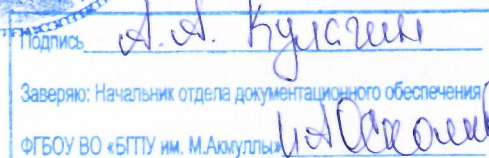 Подпись А. А. Кулагин
Заверяю: Начальник отдела документационного обеспечения
ФГБОУ ВО «БГПУ им. М.Акмуллы»